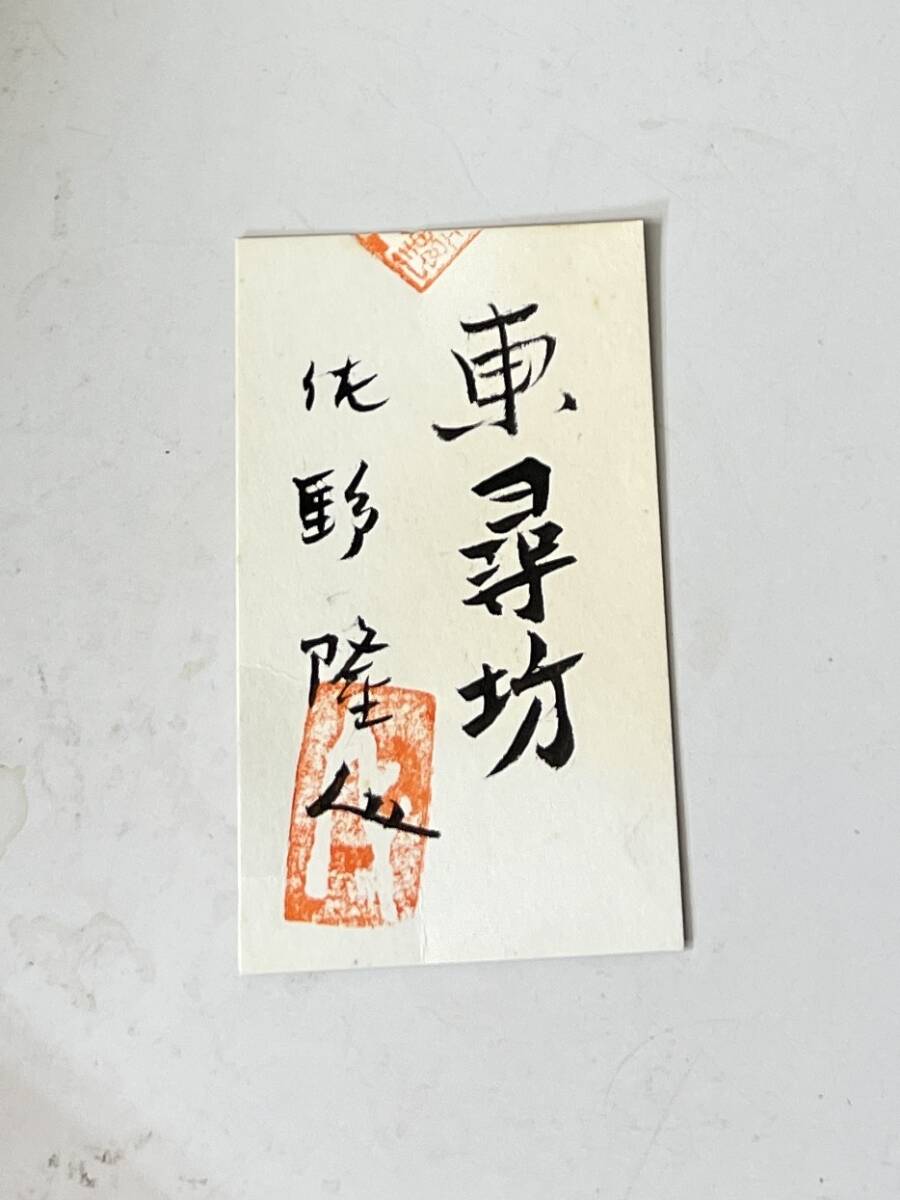 東尋坊
佐野隆